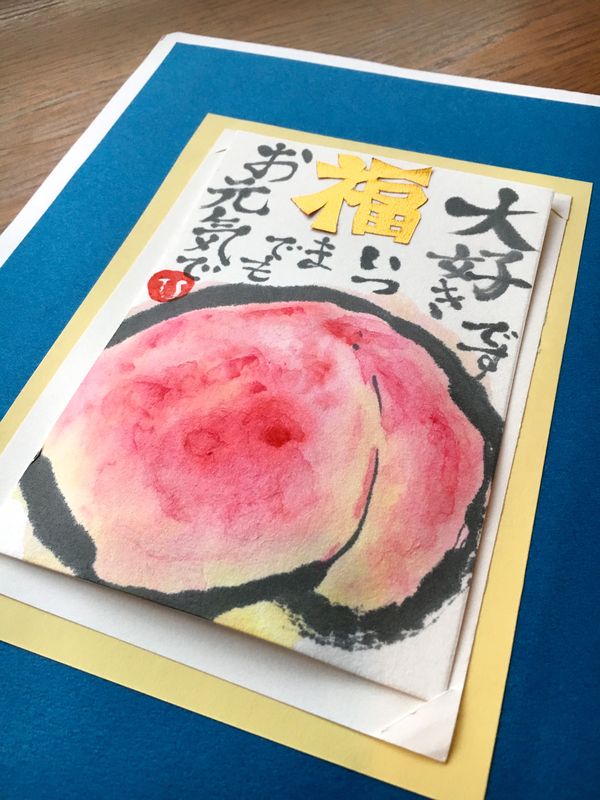 大好きです
福
いつ
までも
お元気で
ひ